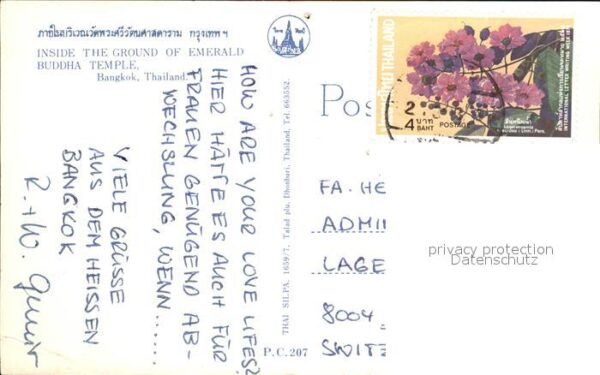 ภายในบริเวณวัดพระศรีรัตนศาสดาราม กรุงเทพฯ
INSIDE THE GROUND OF EMERALD
BUDDHA TEMPLE,
Bangkok, Thailand.
HOW ARE YOUR LOVE LIFES?
HIER HÄTTE ES AUCH FÜR
FRAUEN GENÜGEND AB-
WECHSLUNG, WENN......
VIELE GRÜSSE
AUS DEM HEISSEN
BANGKOK
R. + W.
THAI SILPA. 1659/7, Talad plu, Dhonburi, Thailand, Tel. 663552.
P.C.207
Pos
THAILAND
INTERNATIONAL LETTER WRITING WEEK
2
4 บาท
BAHT POSTAGE
FA. HE
ADMI
LAGE
8004
SWITZ
privacy protection
Datenschutz